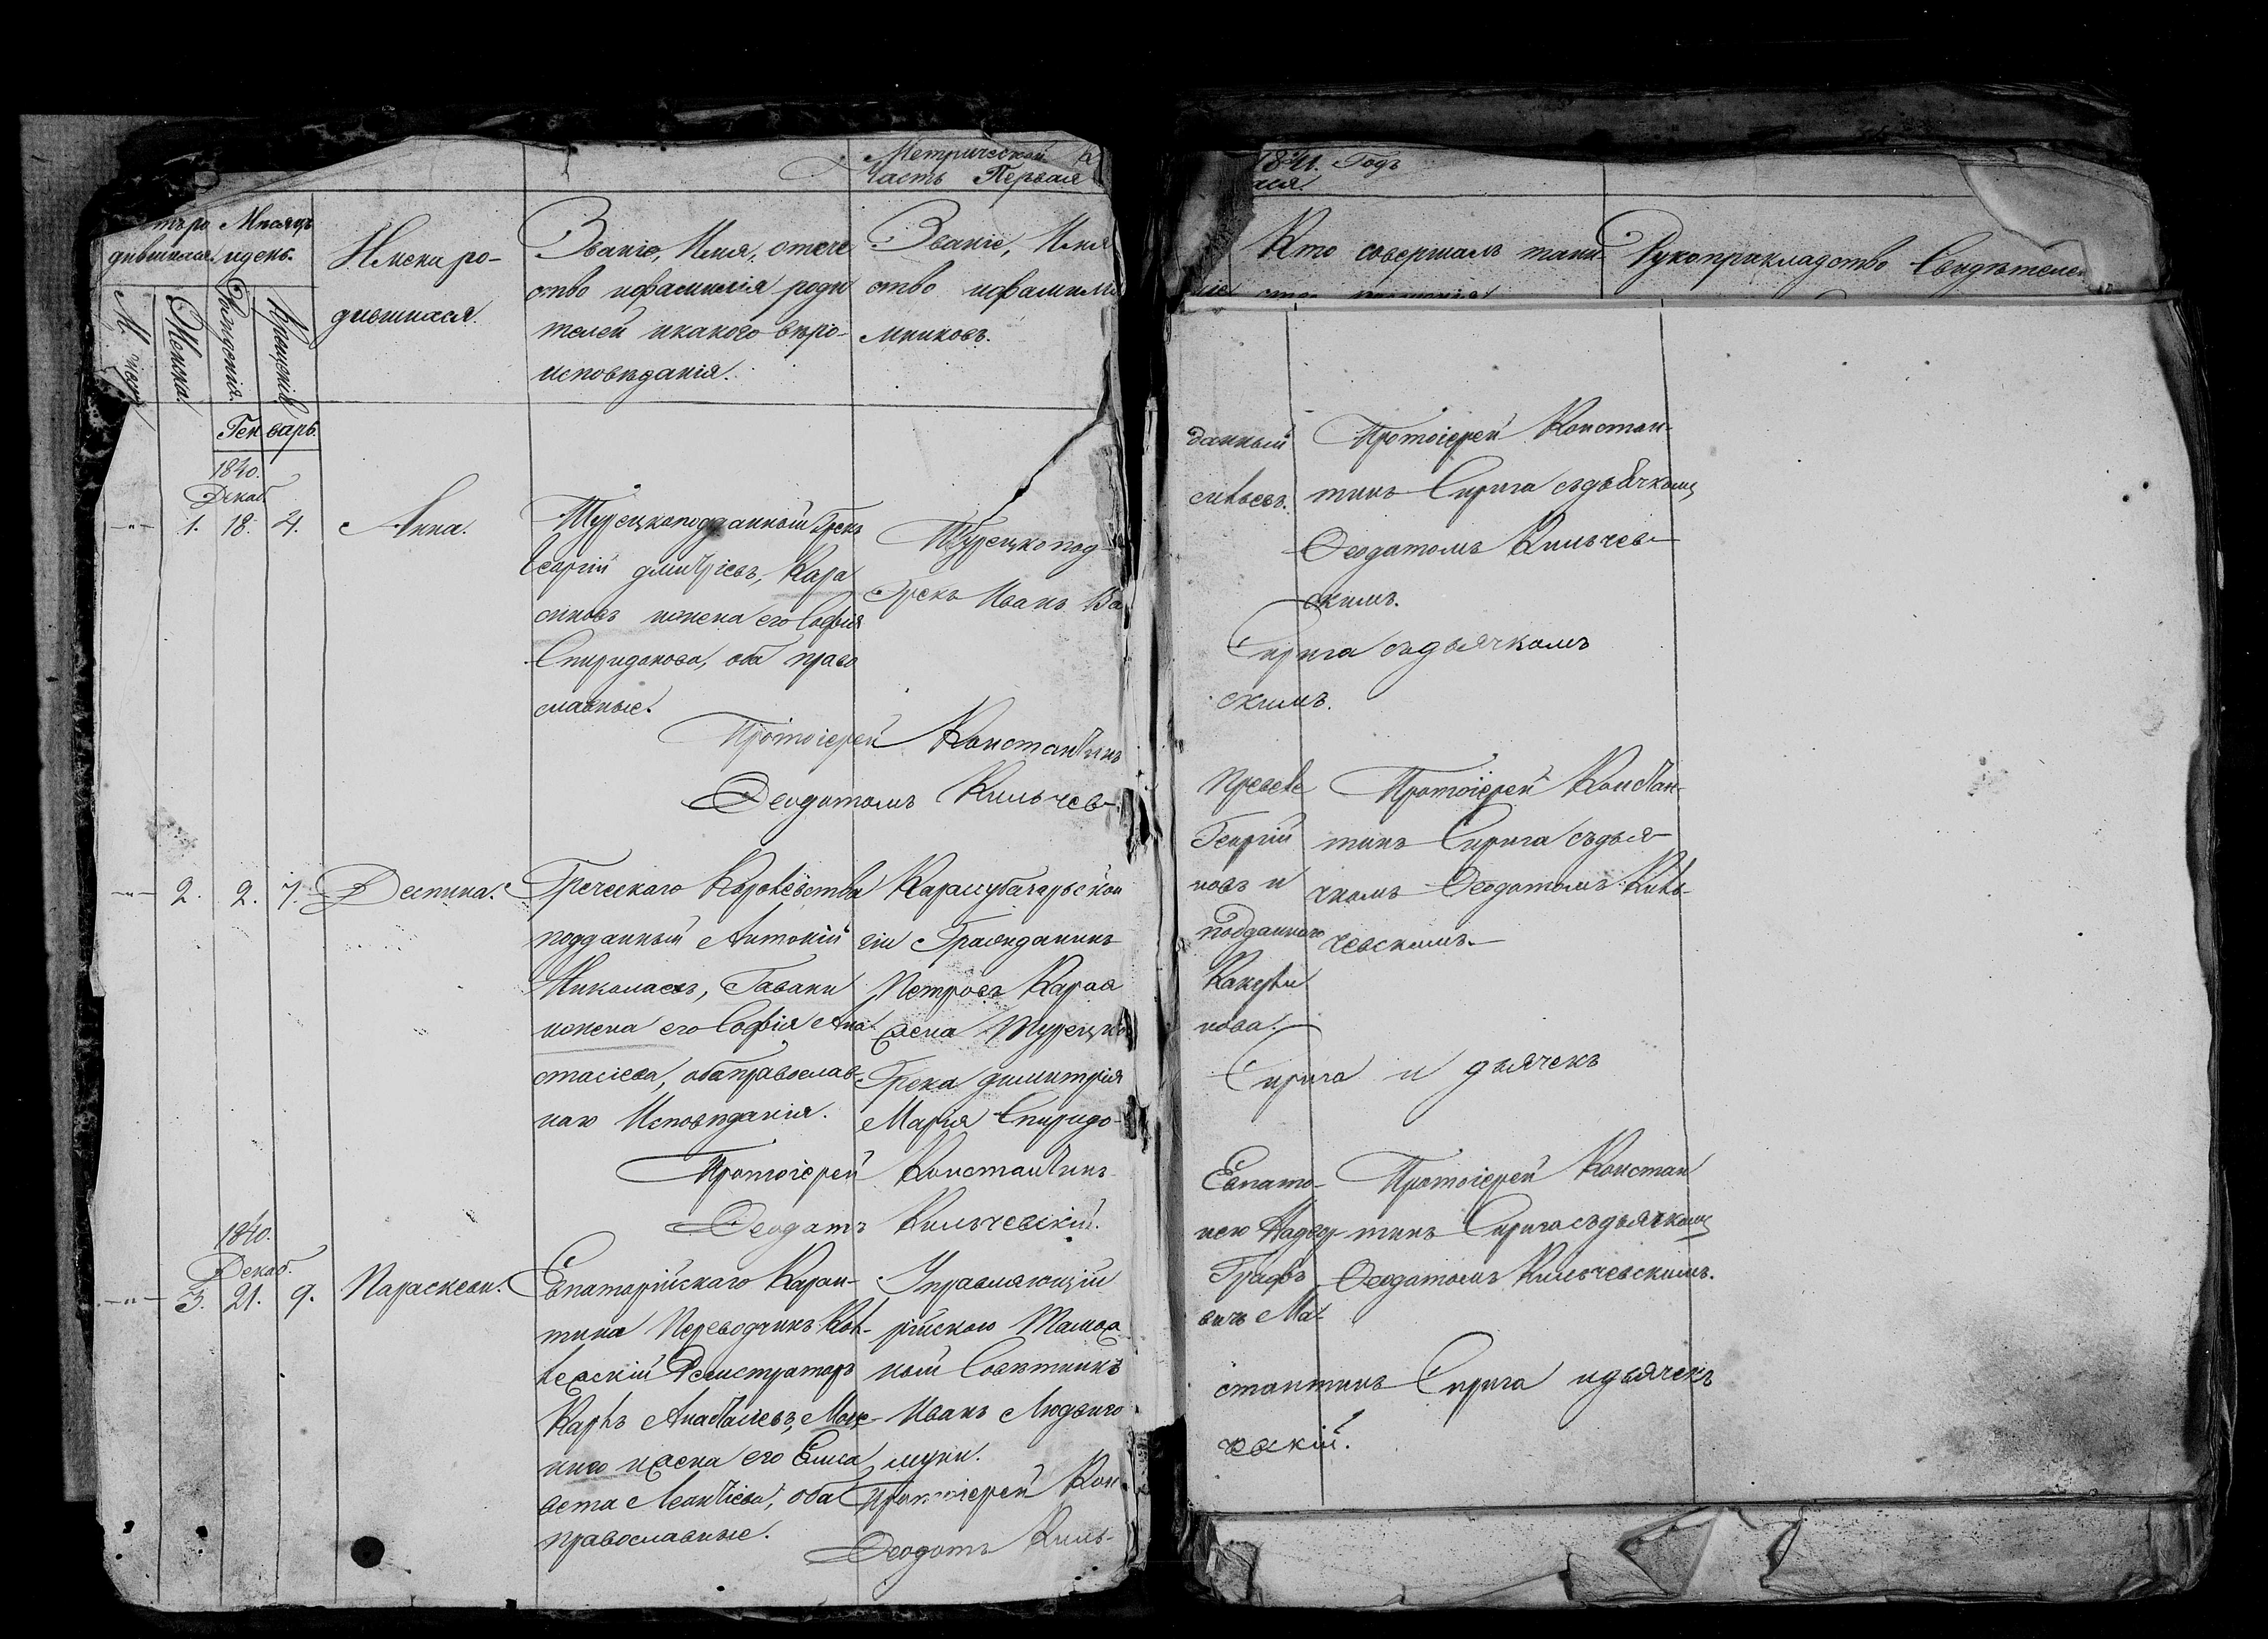 Метрической
Часть Первая
Мѣсяцъ
и день.
Имена ро-
дившихся.
Званіе, Имя, отече
ство и фамилія роди
телей и какого вѣро-
исповѣданія.
Званіе, Имя
ство и фамилія
мниковъ.
Женска
Рожденія.
Крещенія
Генварь.
1840.
Декаб.
1. 18. 4.
Анна.
Турецкоподданный Грекъ
Георгій Дмитріевъ, Кара
и жена его Софія
Спиридонова, оба право
славные.
Турецкопод-
Грекъ Иванъ Ва
Протоіерей Константинъ
Ѳеодотомъ Кильчев-
2. 2. 7.
Деспина.
Греческаго Королевства
подданный Антоній
Николаевъ, Гавани
и жена его Софія Ана-
стасіева, оба православ-
наго Исповѣданія.
Карасубазарьской
ій Гражданинъ
Петровъ Караа
жена Турецко
Грека Димитрія
Марія Спиридо-
Протоіерей Константинъ
Ѳеодотъ Кильчевскій.
1840.
Декаб.
3. 21. 9.
Параскева.
Евпаторійскаго Каран-
тина Переводчикъ Кол-
лежскій Регистраторъ
Карлъ Анастасіевъ,
и жена его Елиса
вета Леонтіева, оба
православные.
Управляющій
рійскою Тамож
ный Совѣтникъ
Иванъ Людвиго
Протоіерей Кон-
Ѳеодотъ Киль-
1841. Годъ
Кто совершалъ таин-
Рукоприкладство Свидѣтелей
данный
сильевъ.
Протоіерей Констан-
тинъ Сирига съ дьячкомъ
Ѳеодотомъ Кильчев-
скимъ.
Сирига съ дьячкомъ
скимъ.
Георгій
новъ и
подданнаго
нова.
Протоіерей Констан-
тинъ Сирига съ дья-
чкомъ Ѳеодотомъ Киль-
чевскимъ.
Сирига и дьячекъ
Евпато-
нею Надвор-
Графъ
вичъ Ма-
Протоіерей Констан
тинъ Сирига съ дьячкомъ
Ѳеодотомъ Кильчевскимъ.
стантинъ Сирига и дьячекъ
чевскій.